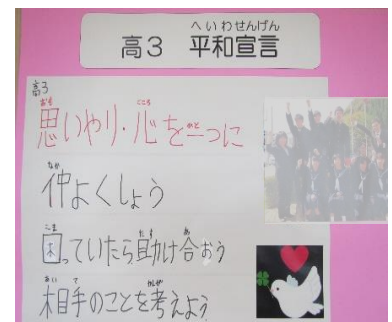 へいわせんげん
高3 平和宣言
高3
おも こころ ひと
思いやり・心を一つに
なか
仲よくしよう
こま たす あ
困っていたら助け合おう
あいて かんが
相手のことを考えよう